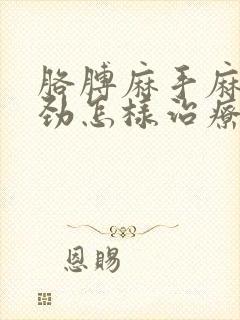 胳膊麻手麻
劲怎样治疗
恩赐